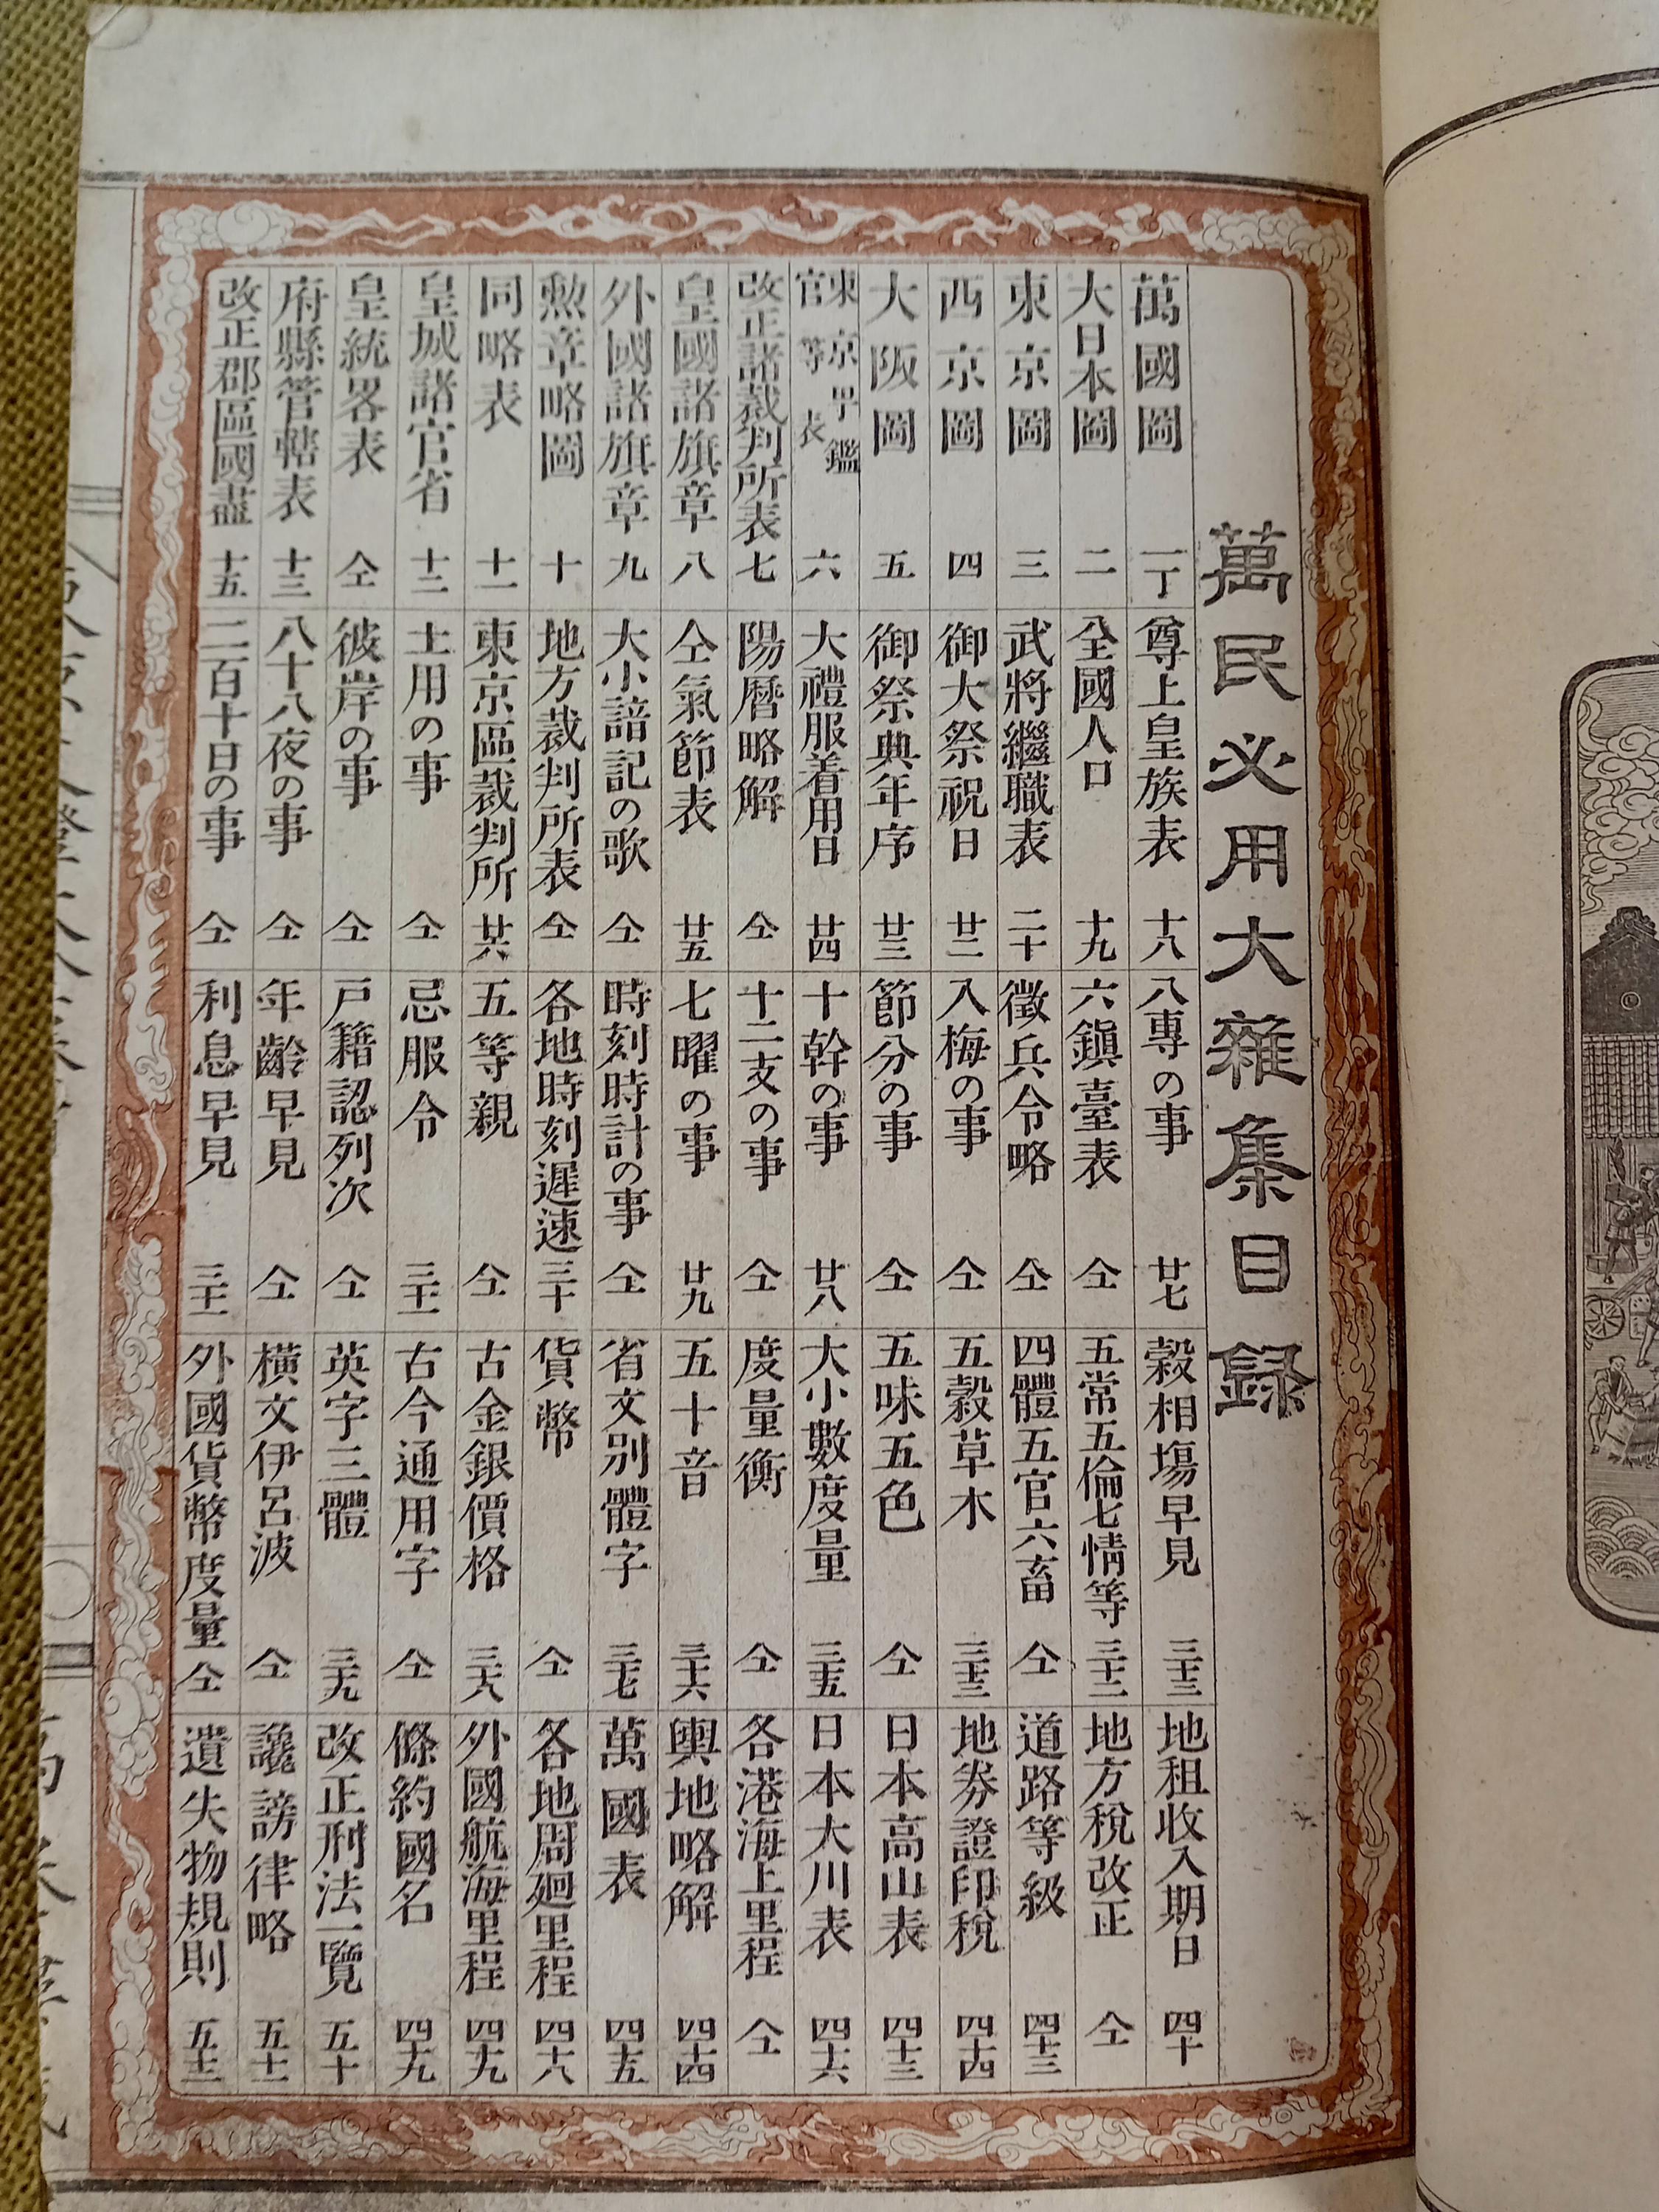 萬民必用大雜集目録
萬國圖 一丁
大日本圖 二
東京圖 三
西京圖 四
大阪圖 五
東京早鑑
官等表 六
改正諸裁判所表 七
皇國諸旗章 八
外國諸旗章 九
勲章略圖 十
同略表 十一
皇城諸官省 十二
皇統畧表 仝
府縣管轄表 十三
改正郡區國盡 十五
尊上皇族表 十八
全國人口 十九
武將繼職表 二十
御大祭祝日 廿二
御祭典年序 廿三
大禮服着用日 廿四
陽暦略解 仝
仝氣節表 廿五
大小諳記の歌 仝
地方裁判所表 仝
東京區裁判所 廿六
土用の事 仝
彼岸の事 仝
八十八夜の事 仝
二百十日の事 仝
八專の事 廿七
六鎭臺表 仝
徴兵令略 仝
入梅の事 仝
節分の事 仝
十幹の事 廿八
十二支の事 仝
七曜の事 廿九
時刻時計の事 仝
各地時刻遲速 三十
五等親 仝
忌服令 三十一
戸籍認列次 仝
年齡早見 仝
利息早見 三十一
穀相塲早見 三十三
五常五倫七情等 三十二
四體五官六畜 仝
五穀草木 三十三
五味五色 仝
大小數度量 三十五
度量衡 仝
五十音 三十六
省文別體字 三十七
貨幣 仝
古金銀價格 三十八
古今通用字 仝
英字三體 三十九
横文伊呂波 仝
外國貨幣度量 仝
地租收入期日 四十
地方税改正 仝
道路等級 四十三
地券證印税 四十四
日本高山表 四十三
日本大川表 四十六
各港海上里程 仝
輿地略解 四十四
萬國表 四十五
各地周廻里程 四十八
外國航海里程 四十九
條約國名 四十九
改正刑法一覽 五十
讒謗律略 五十一
遺失物規則 五十三